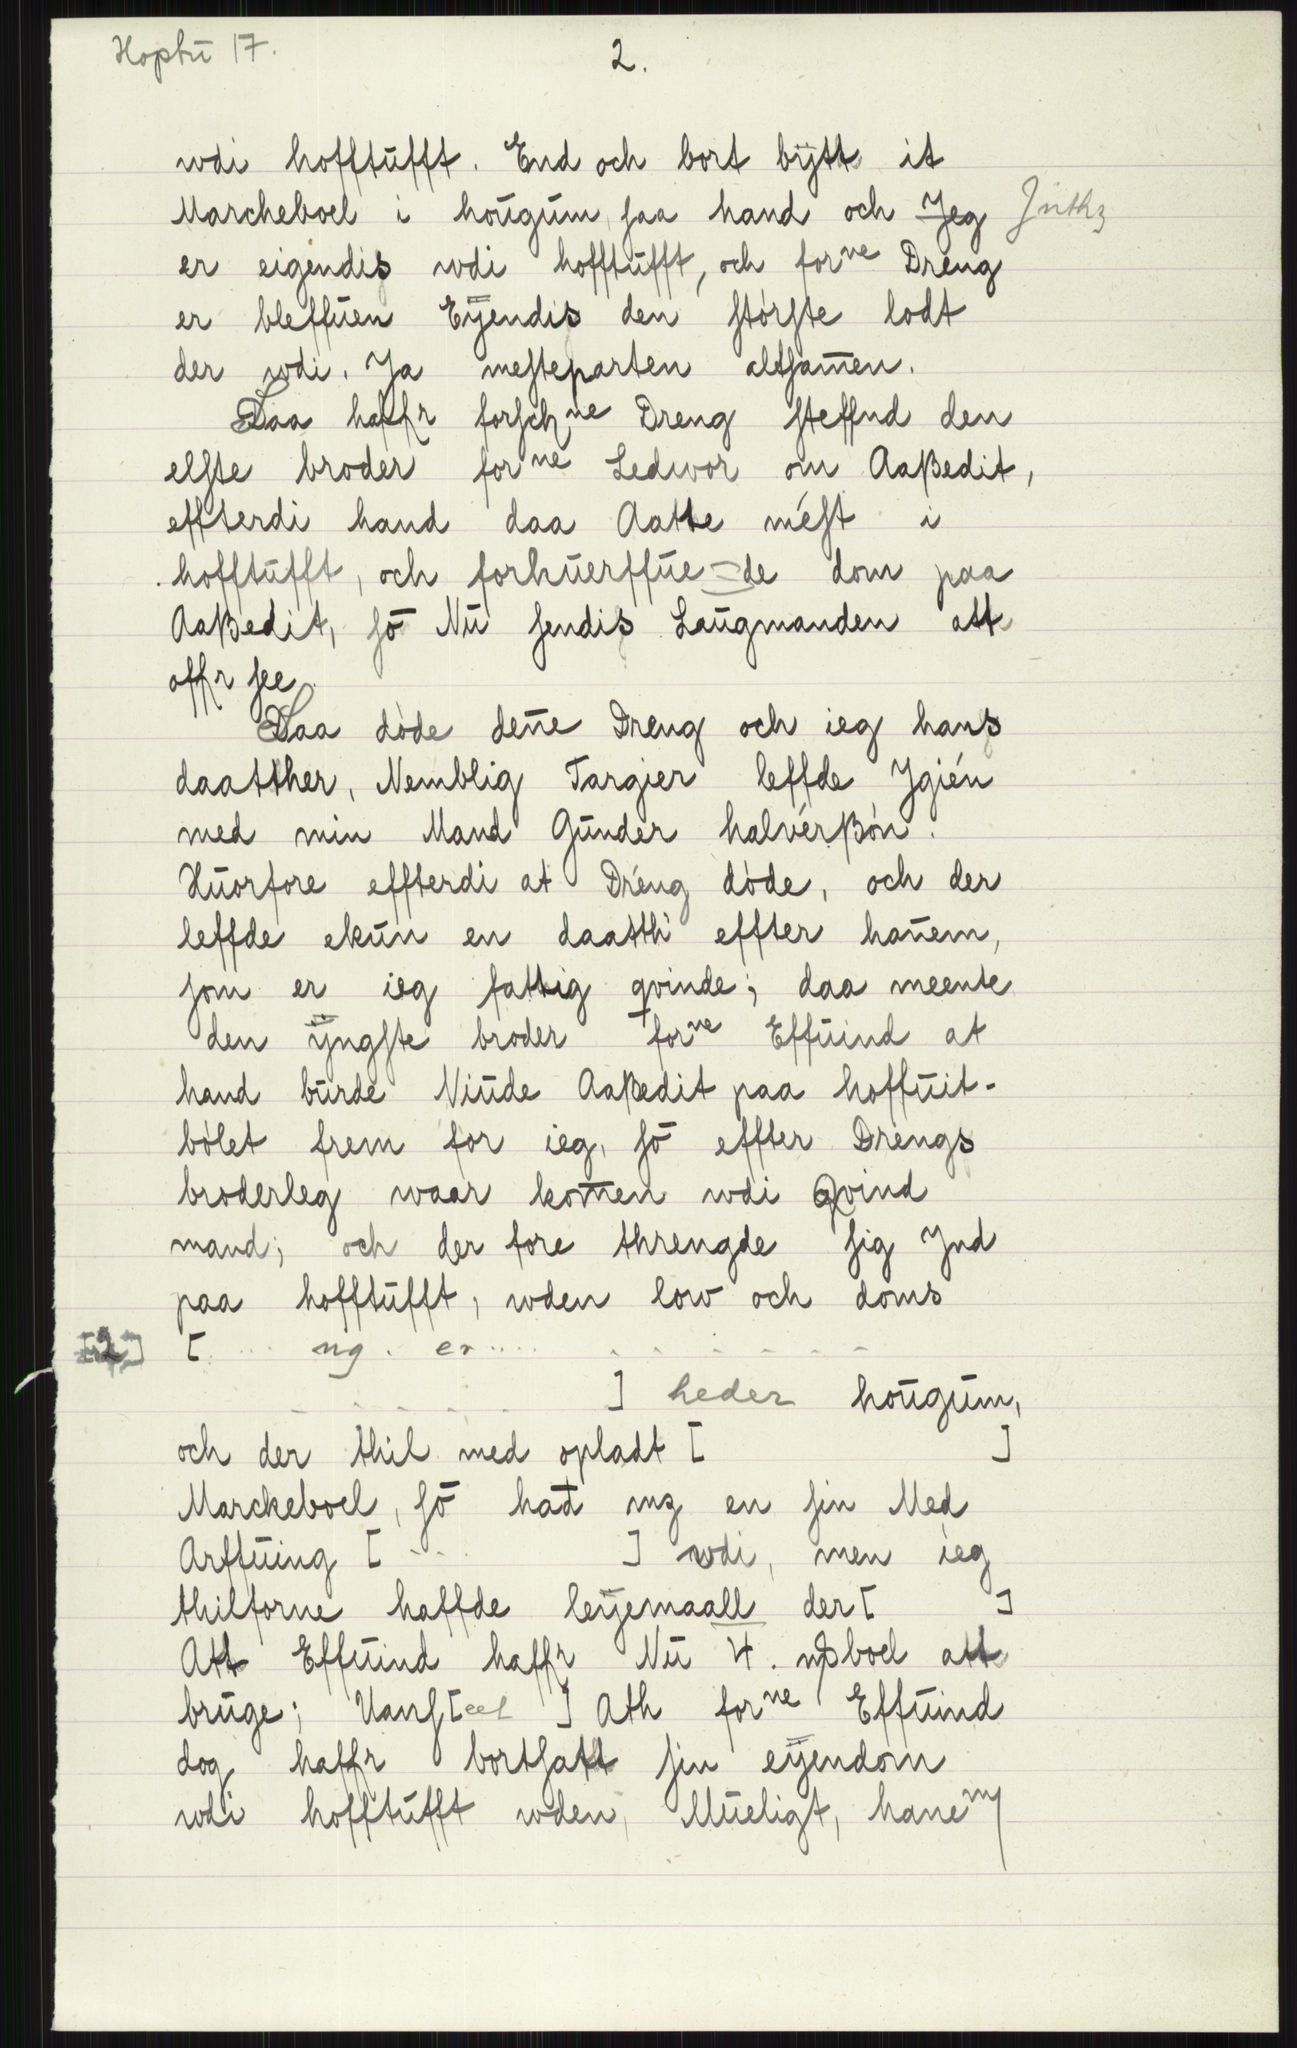 Hoptu 17.
2.
wdi hofftufft. End och bort bÿtt it
Marcheboel i hougum, saa hand och Jeg Jnthz
er eigendis wdi hofftufft, och forne Dreng
er bleffuen Eÿendis den største lodt
der wdi. Ja mesteparten altsamen.
Daa haffr forschne Dreng steffnd den
elste broder forne Ledwor om Aaßedit,
effterdi hand daa Aatte mést i
hofftufft, och forhuerffue=de dom paa
Aaßedit, sō Nu sendis Laugmanden att
offr see.
Daa døde dene Dreng och ieg hans
daatther, Nemblig Targier leffde Jgién
med min Mand Gunder halvérßøn.
Huorfore effterdi at Dréng døde, och der
leffde ekun en daatth effter hanem,
som er ieg fattig qvinde; daa meente
den ÿngste broder forne Effuind at
hand burde Niude Aaßedit paa hoffuit-
bølet frem for ieg, sō effter Drengs
broderleg waar komen wdi Qvind
mand; och der fore threngde sig Jnd
paa hofftufft, wden low och doms
[2] [ ... ng . er ..... . . . . . . .
. . . . . ] heder hougum,
och der thil med opladt [ ]
Marckeboel, sō had mz en sin Med
Arffuing [ ... ] wdi, men ieg
thilforne haffde leÿemaall der [ ]
Att Effuind haffr Nu 4. mßboel att
bruge; Uans[eet ] Ath forne Effuind
dog haffr bortsatt sin eÿendom
wdi hofftufft wden, Mueligt, hanem